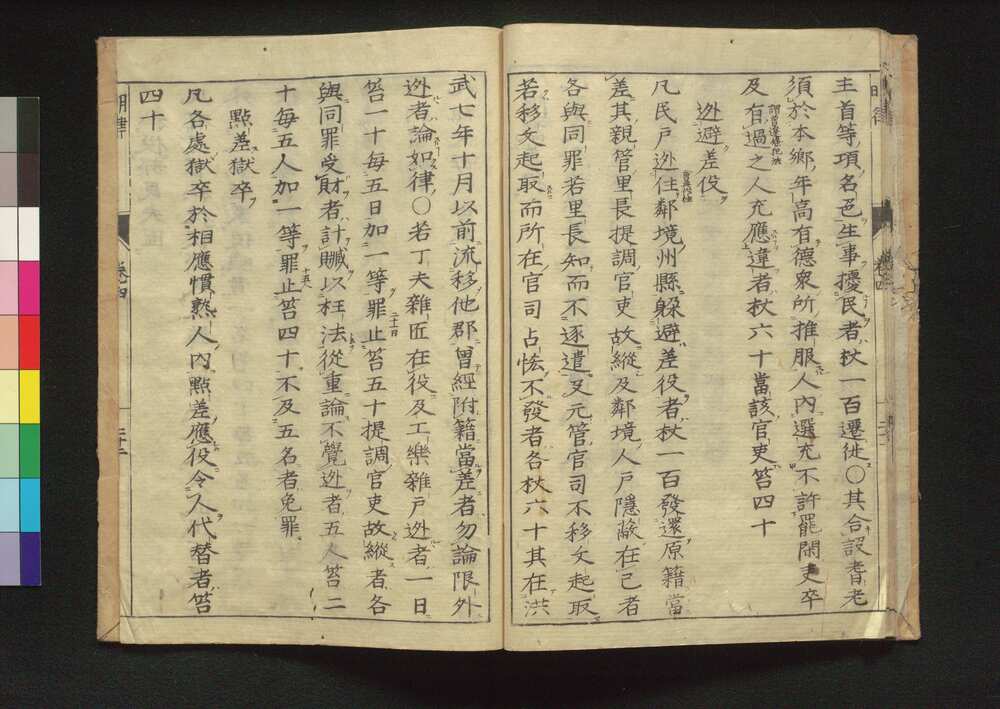 主首等項名色生事擾民者杖一百遷徙〇其合設耆老
須於本鄉年高有德衆所推服人內選充不許罷閑吏卒
及有過之人充應違者杖六十當該官吏笞四十
逃避差役
凡民戶逃住鄰境州縣躱避差役者杖一百發還原籍當
差其親管里長提調官吏故縱及鄰境人戶隱蔽在己者
各與同罪若里長知而不逐遣及元管官司不移文起取
若移文起取而所在官司占恡不發者各杖六十其在洪
武七年十月以前流移他郡曾經附籍當差者勿論限外
逃者論如律〇若丁夫雜匠在役及工樂雜戶逃者一日
笞一十每五日加一等罪止笞五十提調官吏故縱者各
與同罪受財者計贓以枉法從重論不覺逃者五人笞二
十每五人加一等罪止笞四十不及五名者免罪
點差獄卒
凡各處獄卒於相應慣熟人內點差應役令人代替者笞
四十
明律
卷四